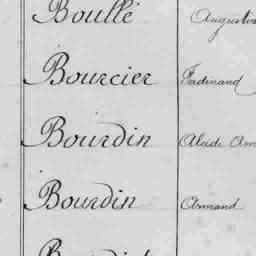 Boullé Augustin
Bourcier Ferdinand
Bourdin Alcide
Bourdin Armand